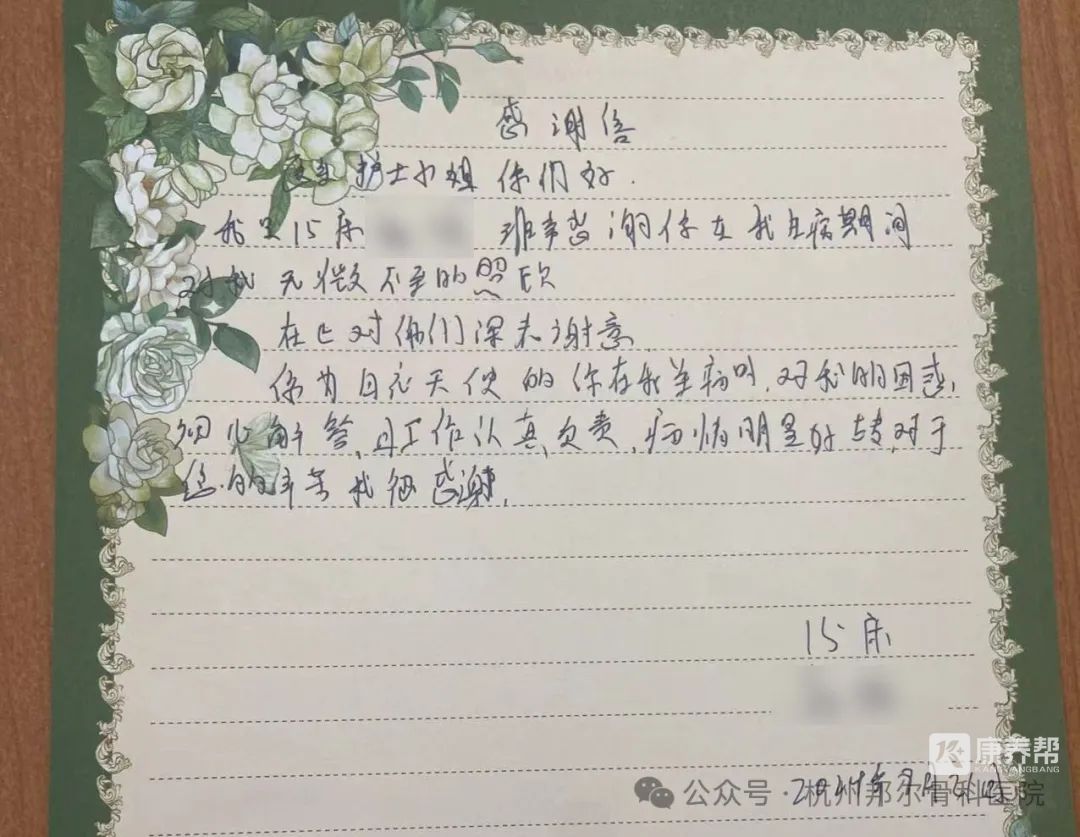 感谢信
医生护士小姐你们好.
我是15床 非常感谢你在我生病期间
对我无微不至的照顾
在此对你们深表谢意
作为白衣天使的你在我生病时.对我的困惑,
细心解答,且工作认真负责,病情明显好转,对于
您的辛苦我很感谢.
15床
公众号·杭州邦尔骨科医院
康养帮
KANGYANGBANG